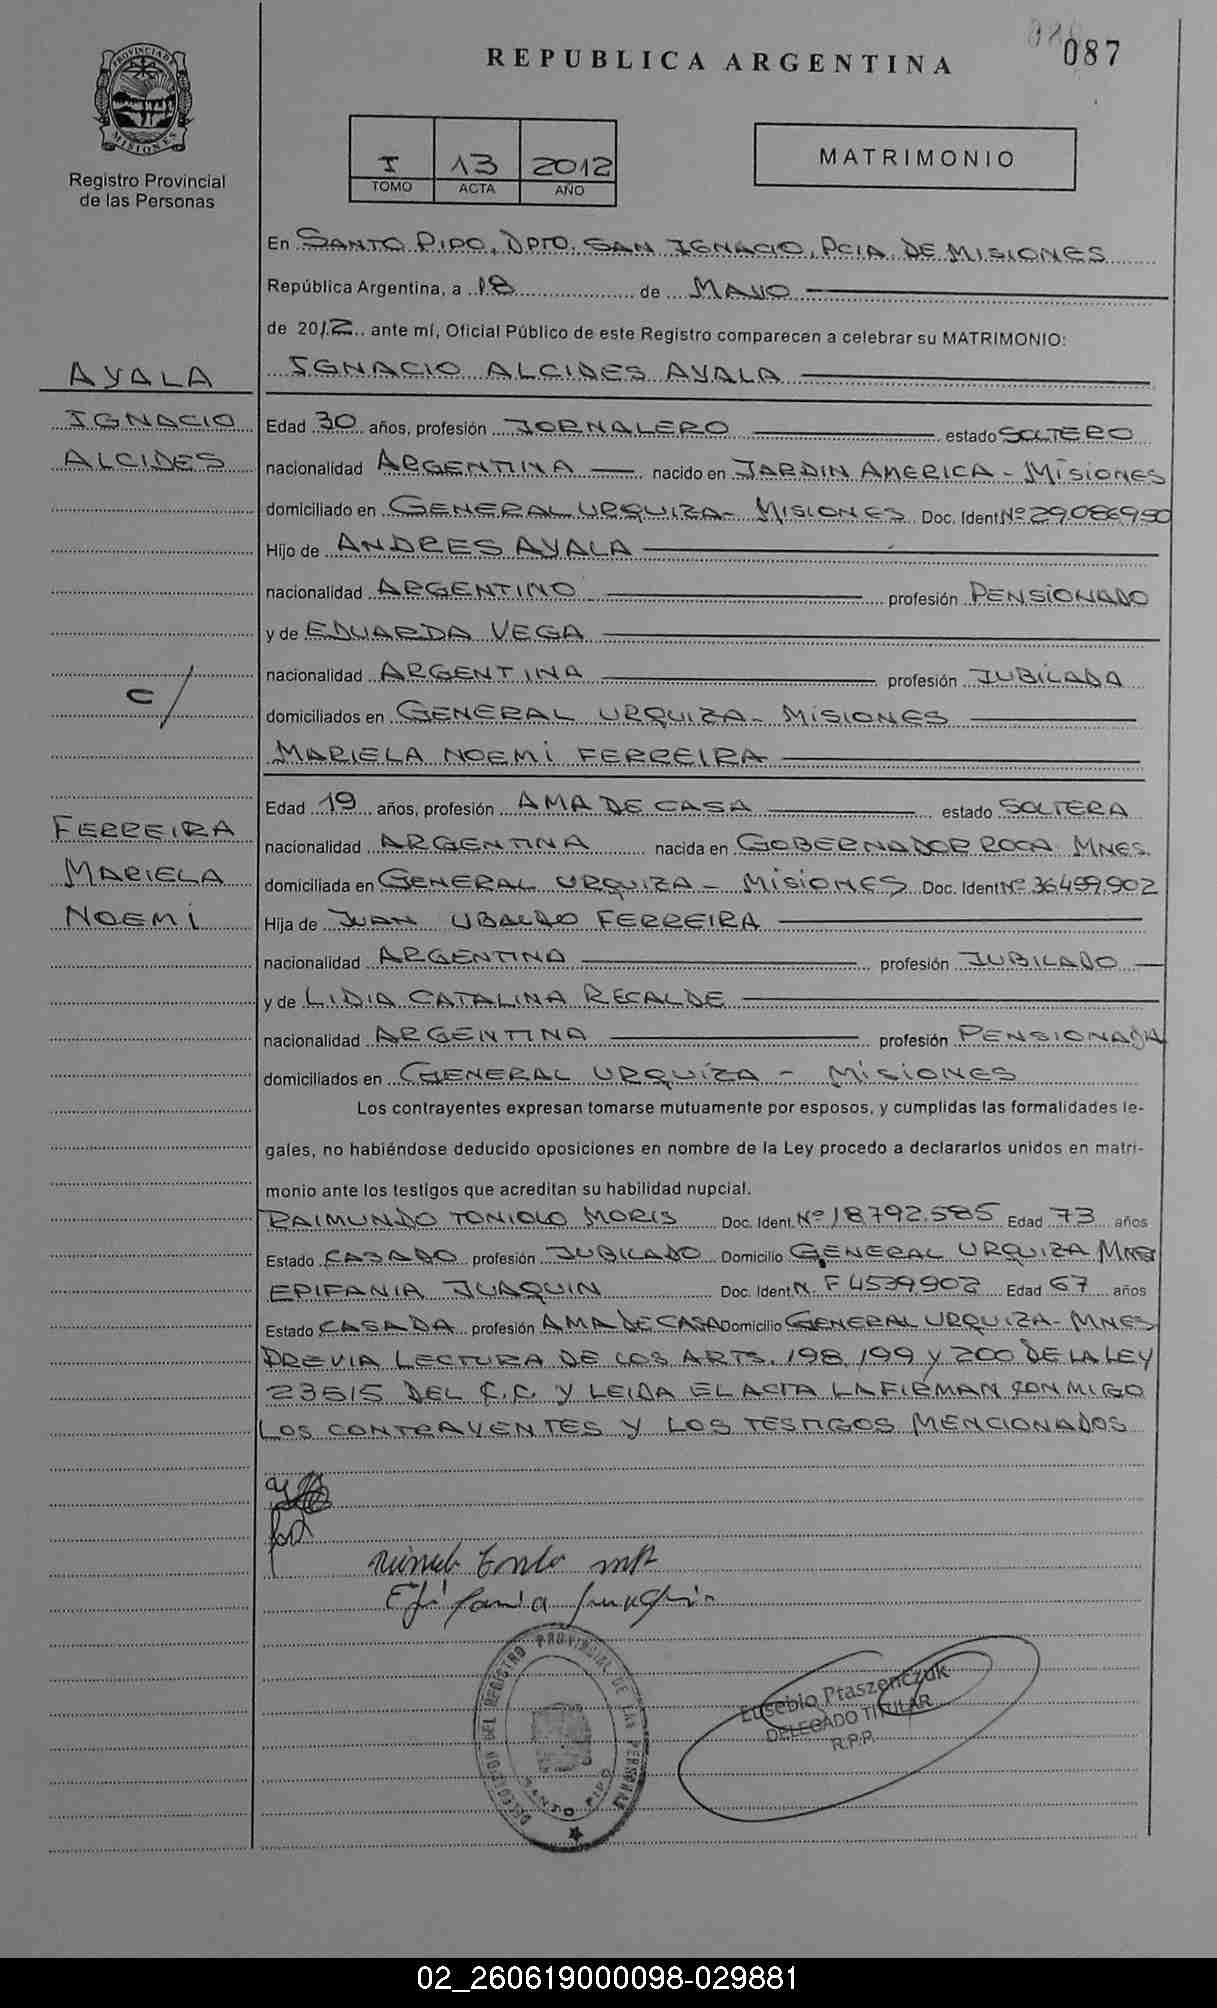 087
REPUBLICA ARGENTINA
PROVINCIA DE MISIONES
Registro Provincial
de las Personas
I 13 2012
TOMO ACTA AÑO
MATRIMONIO
En SANTO PIPO, DPTO. SAN IGNACIO, PCIA. DE MISIONES
República Argentina, a 18 de MAYO
de 2012 ante mí, Oficial Público de este Registro comparecen a celebrar su MATRIMONIO:
AYALA
IGNACIO ALCIDES AYALA
IGNACIO
Edad 30 años, profesión JORNALERO estado SOLTERO
ALCIDES
nacionalidad ARGENTINA nacido en JARDIN AMERICA - MISIONES
domiciliado en GENERAL URQUIZA - MISIONES Doc. Ident. Nº 29.086.950
Hijo de ANDRES AYALA
nacionalidad ARGENTINO profesión PENSIONADO
y de EDUARDA VEGA
nacionalidad ARGENTINA profesión JUBILADA
c/
domiciliados en GENERAL URQUIZA - MISIONES
MARIELA NOEMI FERREIRA
Edad 19 años, profesión AMA DE CASA estado SOLTERA
FERREIRA
nacionalidad ARGENTINA nacida en GOBERNADOR ROCA MNES.
MARIELA
domiciliada en GENERAL URQUIZA - MISIONES Doc. Ident Nº 36.459.902
NOEMI
Hija de JUAN UBALDO FERREIRA
nacionalidad ARGENTINO profesión JUBILADO
y de LIDIA CATALINA RECALDE
nacionalidad ARGENTINA profesión PENSIONADA
domiciliados en GENERAL URQUIZA - MISIONES
Los contrayentes expresan tomarse mutuamente por esposos, y cumplidas las formalidades le-
gales, no habiéndose deducido oposiciones en nombre de la Ley procedo a declararlos unidos en matri-
monio ante los testigos que acreditan su habilidad nupcial.
RAIMUNDO TONIOLO MORIS Doc. Ident. Nº 18.792.585 Edad 73 años
Estado CASADO profesión JUBILADO Domicilio GENERAL URQUIZA MNES
EPIFANIA JUAQUIN Doc. Ident. N. F 4539902 Edad 67 años
Estado CASADA profesión AMA DE CASA Domicilio GENERAL URQUIZA - MNES
PREVIA LECTURA DE LOS ARTS. 198, 199 Y 200 DE LA LEY
23515 DEL C.C. Y LEIDA EL ACTA LA FIRMAN CONMIGO
LOS CONTRAYENTES Y LOS TESTIGOS MENCIONADOS
Epifania Juaquin
DELEGACION DEL REGISTRO PROVINCIAL DE LAS PERSONAS
SANTO PIPO
Eusebio Ptaszenczuk
DELEGADO TITULAR
R.P.P.
02_260619000098-029881